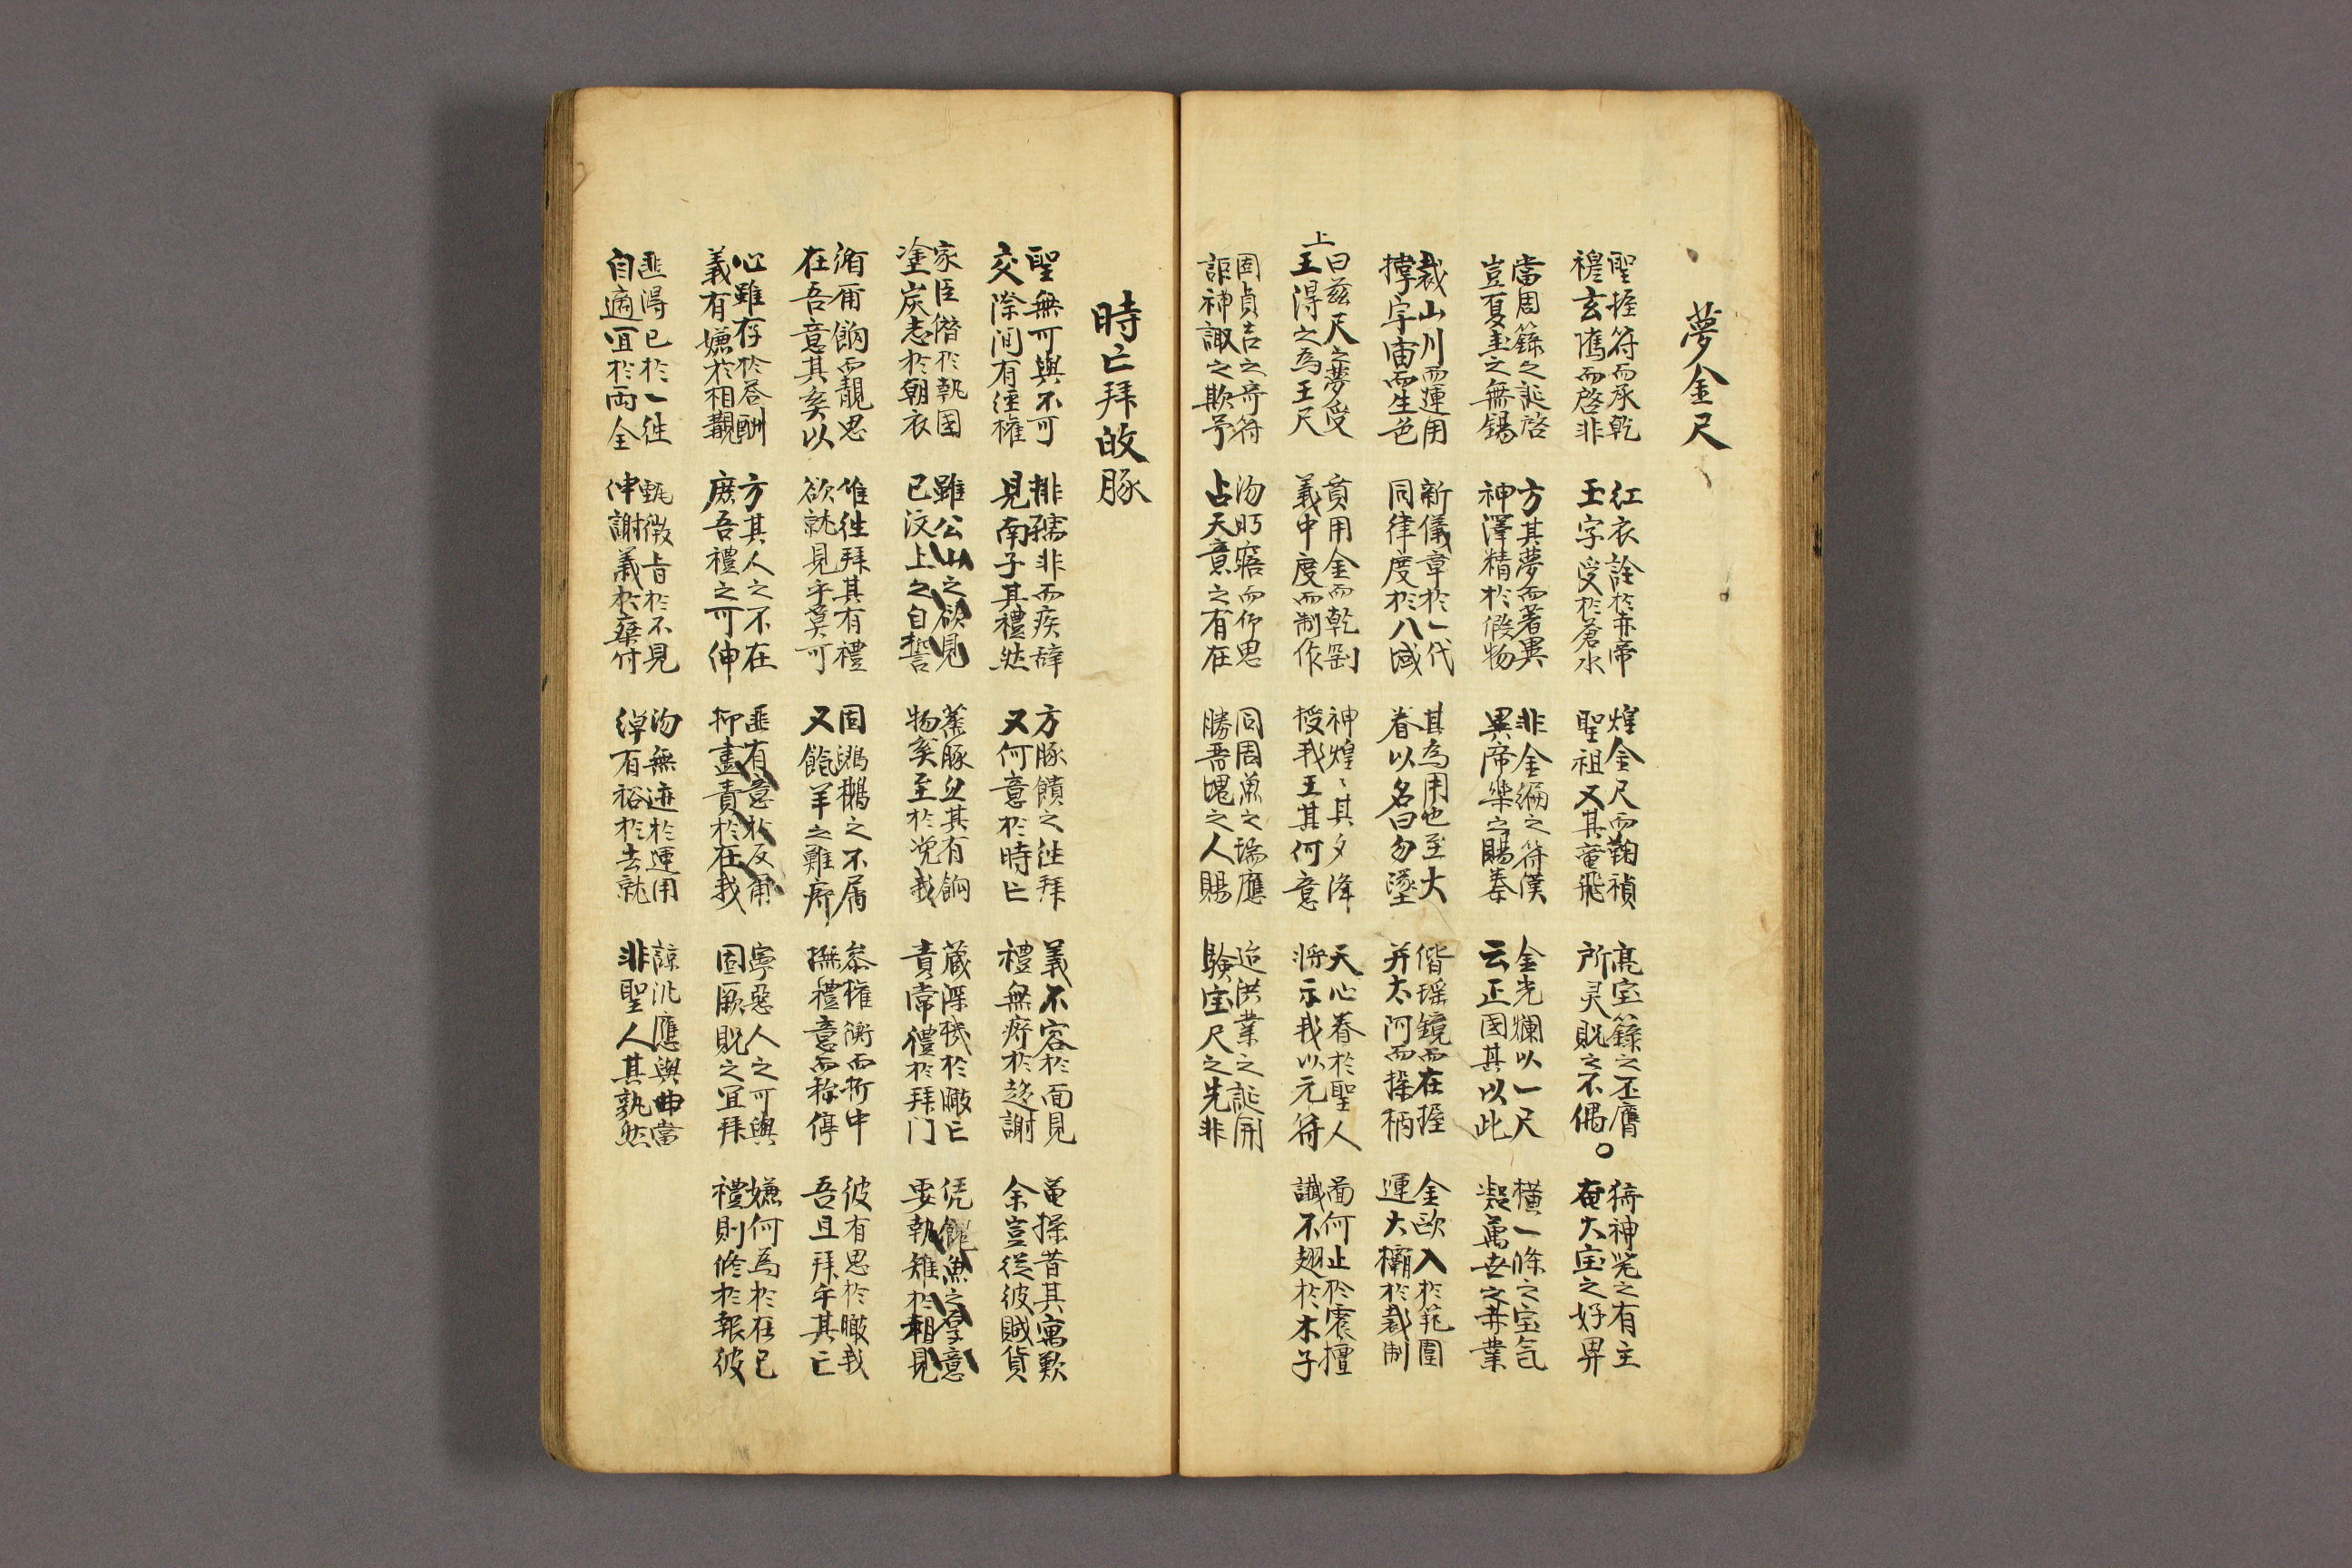 夢金尺
聖握符而承乾
禎玄膺而啓非
紅衣詮於赤帝
玉字受於蒼水
煌金尺而鞠禎
聖祖又其竜飛
高宝籙之丕膺
所灵貺之不偶。
猗神器之有主
奄大宝之好畀
當周籙之誕啓
豈夏圭之無錫
方其夢而著異
神澤精於假物
非金縢之符漢
異帝樂之賜秦
金光爛以一尺
云正國其以此
橫一條之宝气
凝萬世之丕業
裁山川而運用
撑宇宙而生色
新儀章於一代
同律度於八域
其為用也至大
眷以名曰勿墜
偕瑶鏡而在握
并太阿而操柄
金甌入於範圍
運大欛於裁制
曰茲尺之夢受
上王得之為王尺
賁用金而乾剛
義中度而制作
神煌〻其夕降
授我王其何意
天心眷於聖人
將示我以元符
啚何止於震檀
讖不翅於木子
固貞吉之奇符
詎神諏之欺予
汤旳寤而仰思
占天意之有在
同周魚之瑞應
勝吾媿之人賜
迨洪業之誕開
驗宝尺之先非
時亡拜故豚
聖無可與不可
交際间有經權
排孺非而疾辞
見南子其禮然
方豚饋之往拜
又何意於時亡
義不容於面見
禮無疵於趍謝
龜操昔其寓歎
余豈從彼賊貨
家臣僭於執國
塗炭志於朝衣
雖公山之欲見
已汶上之自誓
蒸豚业其有餉
物奚至於况我
藏深機於瞰亡
責常禮於拜门
凭饋魚之享意
要執雉於相見
循甫餉而靚思
在吾意其奚以
俻往拜其有禮
欲就見乎奠可
固鶂鵝之不屑
又餼羊之難廢
叅權衡而折中
撫禮意而称停
彼有思於瞰我
吾且拜乎其亡
心雖存於答酬
義有嫌於相覿
方其人之不在
庶吾禮之可伸
匪有意於反甫
抑盡責於在我
寧惡人之可與
固厥貺之冝拜
嫌何為於在已
禮則修於報彼
匪得已於一往
自適冝於両全
甄微旨於不見
伸謝義於棄付
汤無迹於運用
綽有裕於去就
諒泛應與曲當
非聖人其孰然